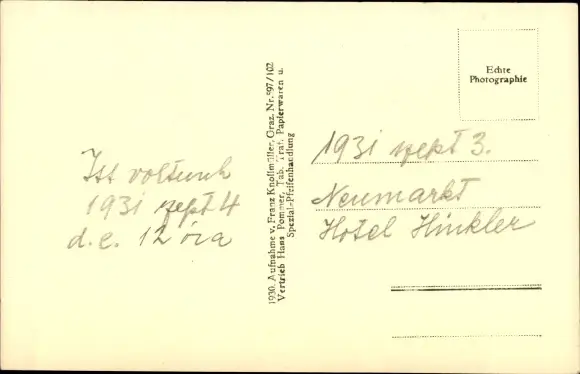 Echte
Photographie
Itt voltunk
1931 szept 4
d.e. 12 óra
1930. Aufnahme v. Franz Knollmüller, Graz, Nr. 997/102
Vertrieb Hans Pommer, Tab. Traf. Papierwaren u.
Spezial-Pfeifenhandlung
1931 szept 3.
Neumarkt
Hotel Hinkler